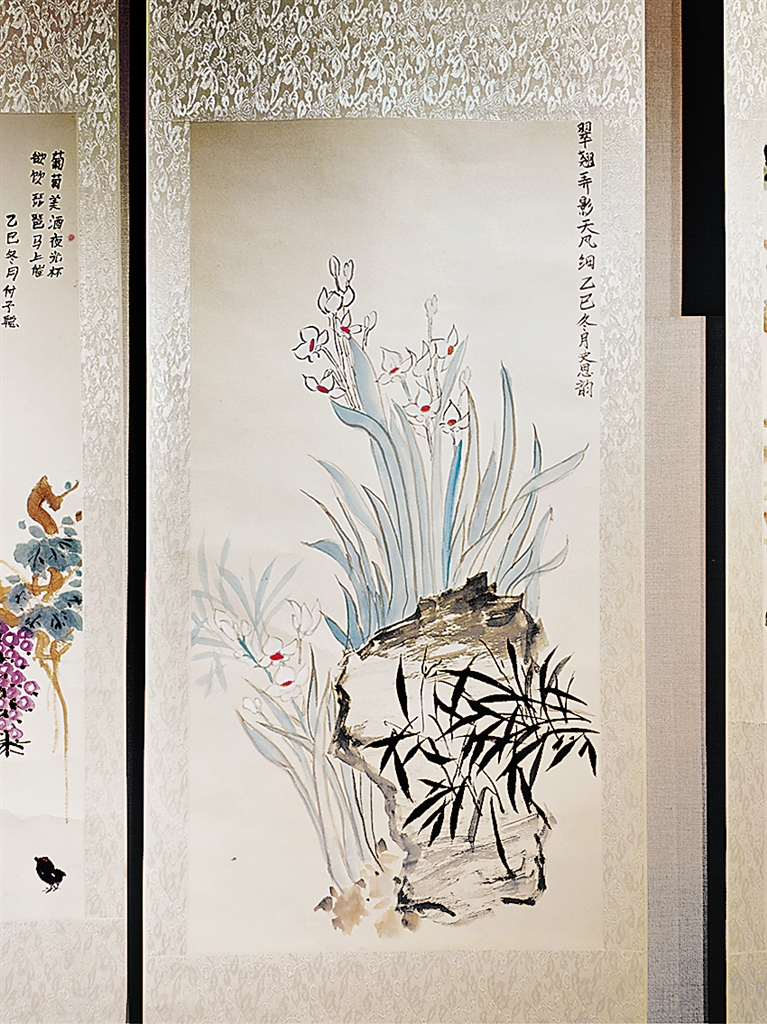 葡萄美酒夜光杯
欲饮琵琶马上催
乙巳冬月付子聪
翠翘弄影天风细乙巳冬月史恩韵